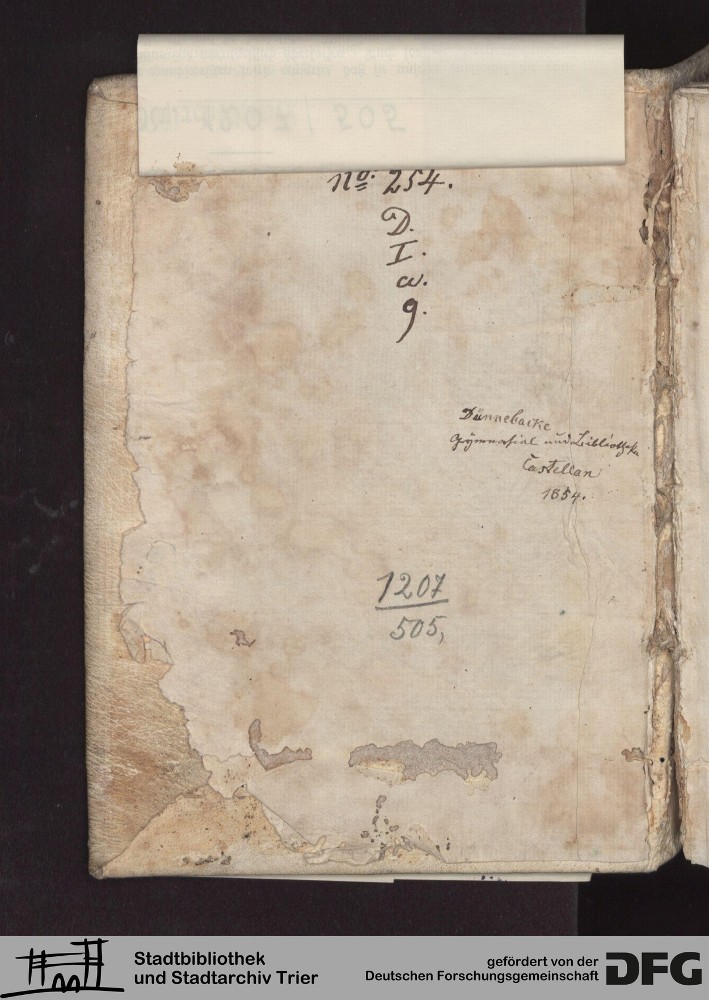 No. 254.
D.
I.
a.
g.
Dünnebacke
Gymnasial und Bibliotheks
Castellan
1854.
1207
505,
Stadtbibliothek
und Stadtarchiv Trier
gefördert von der
Deutschen Forschungsgemeinschaft
DFG